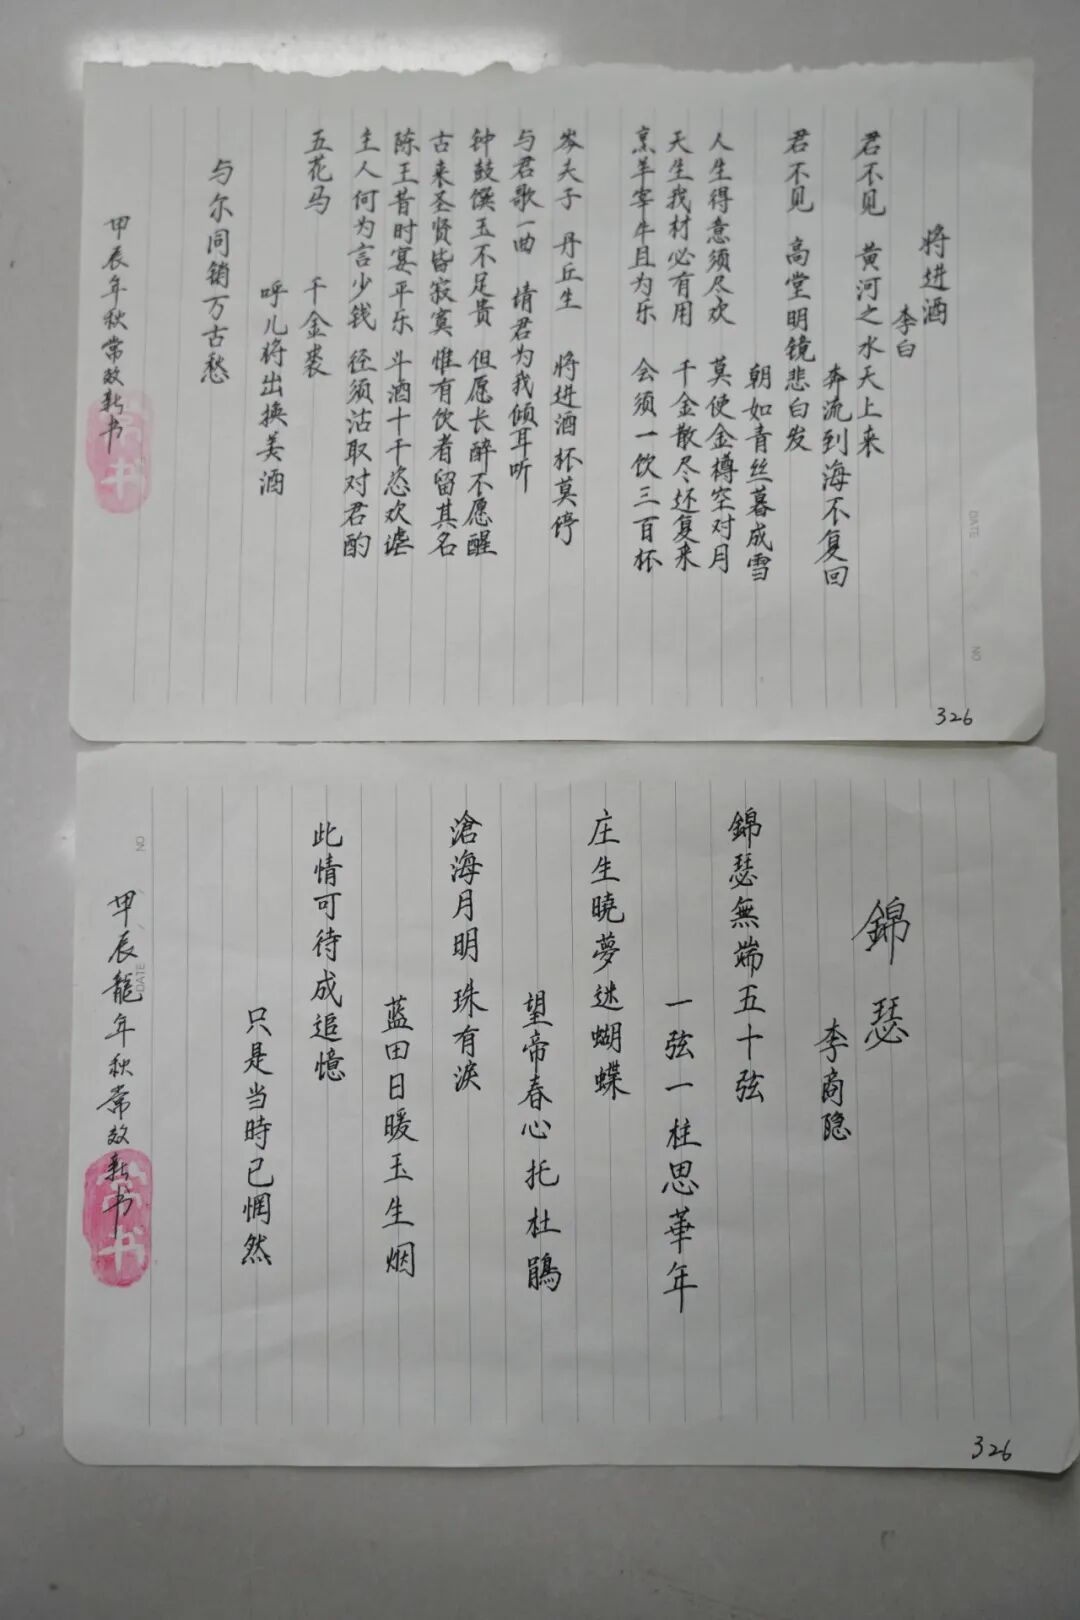 将进酒
李白
君不见 黄河之水天上来
奔流到海不复回
君不见 高堂明镜悲白发
朝如青丝暮成雪
人生得意须尽欢 莫使金樽空对月
天生我材必有用 千金散尽还复来
烹羊宰牛且为乐 会须一饮三百杯
岑夫子 丹丘生 将进酒杯莫停
与君歌一曲 请君为我倾耳听
钟鼓馔玉不足贵 但愿长醉不愿醒
古来圣贤皆寂寞 惟有饮者留其名
陈王昔时宴平乐 斗酒十千恣欢谑
主人何为言少钱 径须沽取对君酌
五花马 千金裘
呼儿将出换美酒
与尔同销万古愁
甲辰年秋常效新书
常书
DATE
NO
326
錦瑟
李商隐
錦瑟無端五十弦
一弦一柱思華年
庄生曉夢迷蝴蝶
望帝春心托杜鵑
滄海月明珠有淚
蓝田日暖玉生烟
此情可待成追憶
只是当時已惘然
甲辰龍年秋常效新书
常书
NO
DATE
326